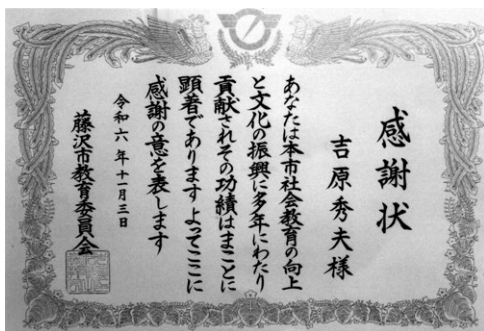 感謝状
吉原秀夫様
あなたは本市社会教育の向上
と文化の振興に多年にわたり
貢献されその功績はまことに
顕著でありますよってここに
感謝の意を表します
令和六年十一月三日
藤沢市教育委員会